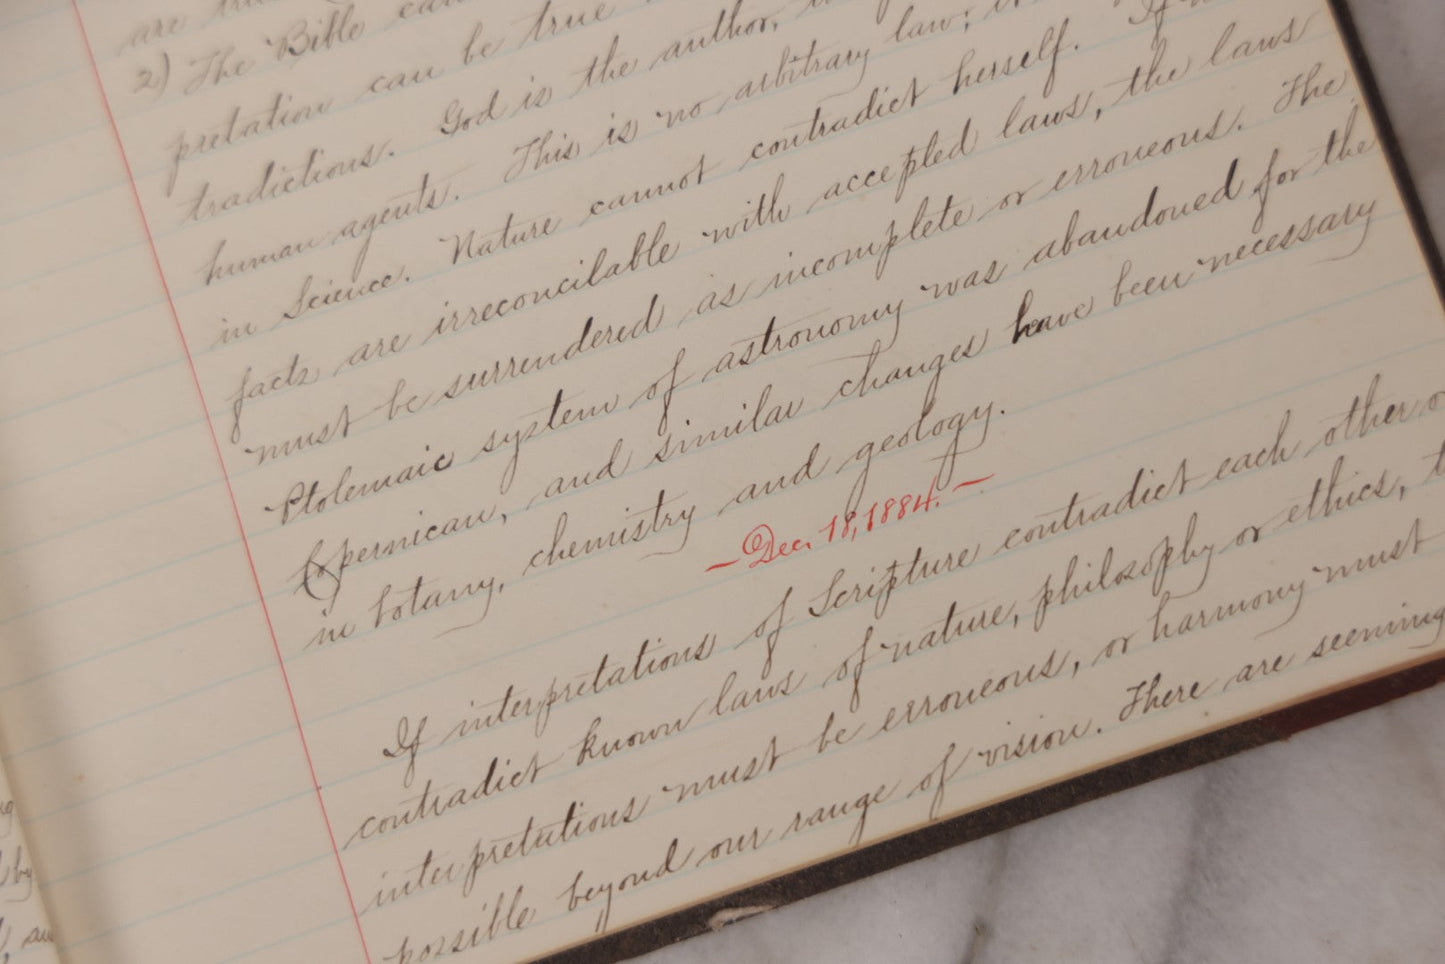 are
2) The Bible can
pretation can be true
tradictions. God is the author,
human agents. This is no arbitrary law;
in Science. Nature cannot contradict herself. If
facts are irreconcilable with accepted laws, the laws
must be surrendered as incomplete or erroneous. The
Ptolemaic system of astronomy was abandoned for the
Copernican, and similar changes have been necessary
in botany, chemistry and geology.
— Dec. 18, 1884. —
If interpretations of Scripture contradict each other or
contradict known laws of nature, philosophy or ethics,
interpretations must be erroneous, or harmony must
possible beyond our range of vision. There are seeming